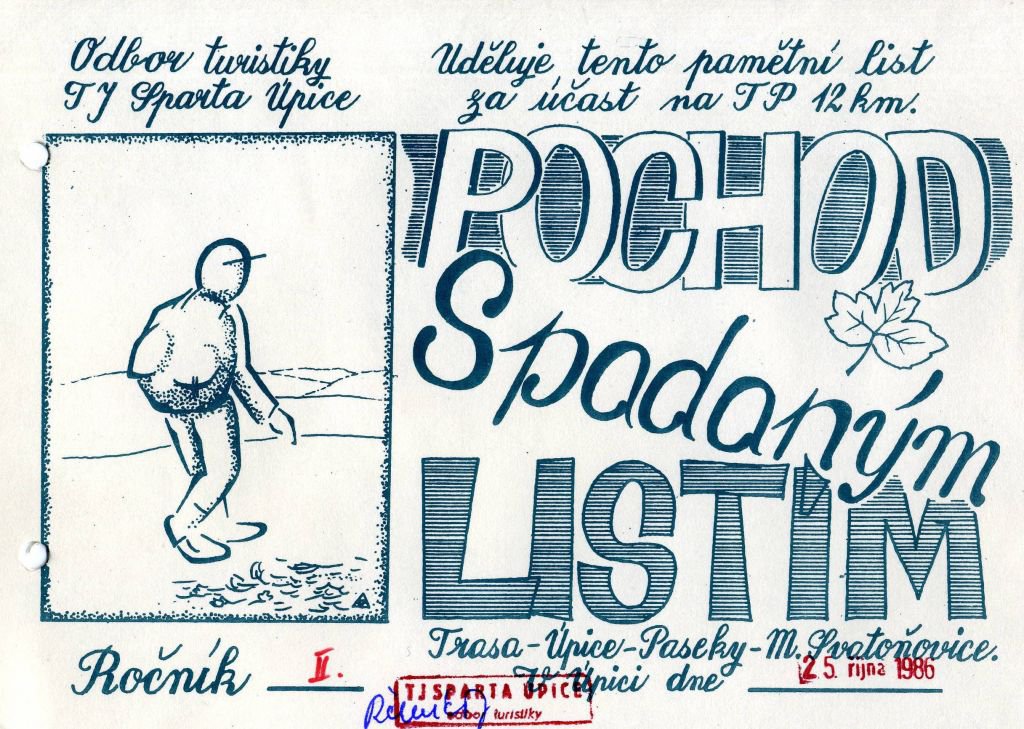 Odbor turistiky
TJ Sparta Úpice
Uděluje tento pamětní list
za účast na TP 12 km.
POCHOD
Spadaným
LISTÍM
Trasa - Úpice - Paseky - M. Svatoňovice.
V Úpici dne 25. října 1986
Ročník II.
TJ SPARTA ÚPICE
odbor turistiky